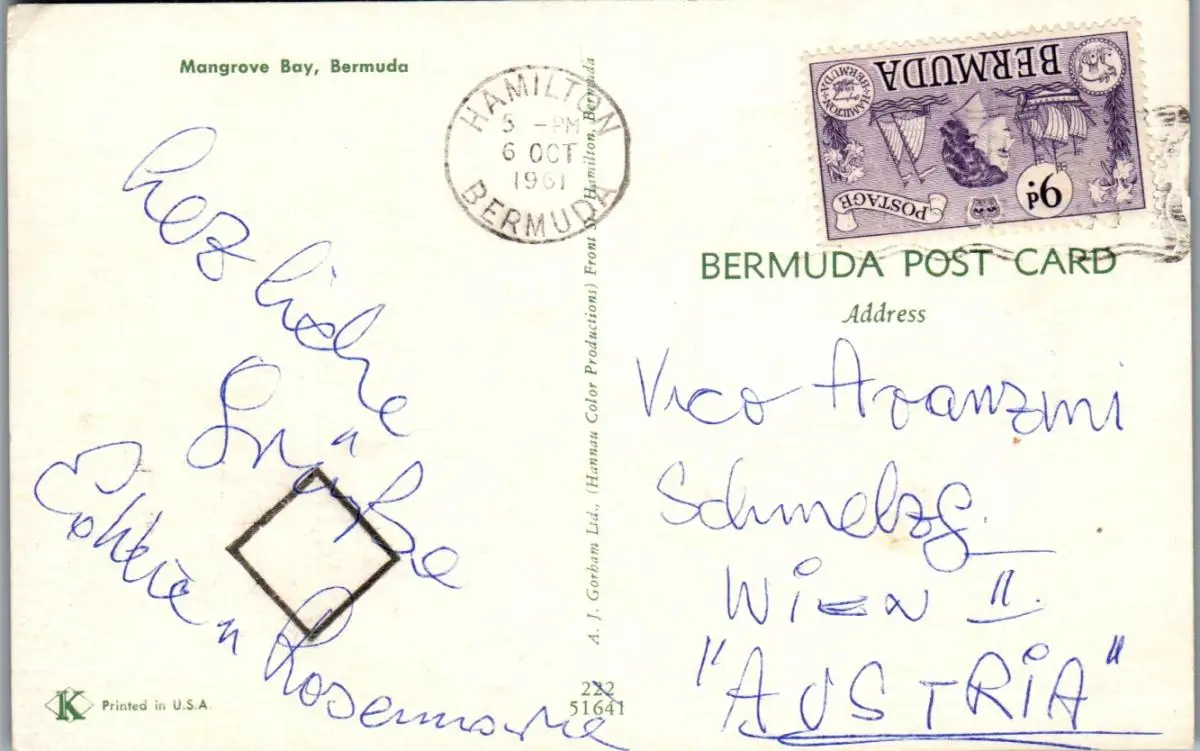 Mangrove Bay, Bermuda
HAMILTON
5 - PM
6 OCT
1961
BERMUDA
BERMUDA
HAMILTON · BERMUDA
POSTAGE
9d.
BERMUDA POST CARD
Address
herzliche
Grüße
u Rosemarie
Vico Aranzini
Schmelzg.
Wien II.
"AUSTRIA"
A. J. Gorham Ltd., (Hannau Color Productions) Front St., Hamilton, Bermuda
K
Printed in U.S.A.
222
51641